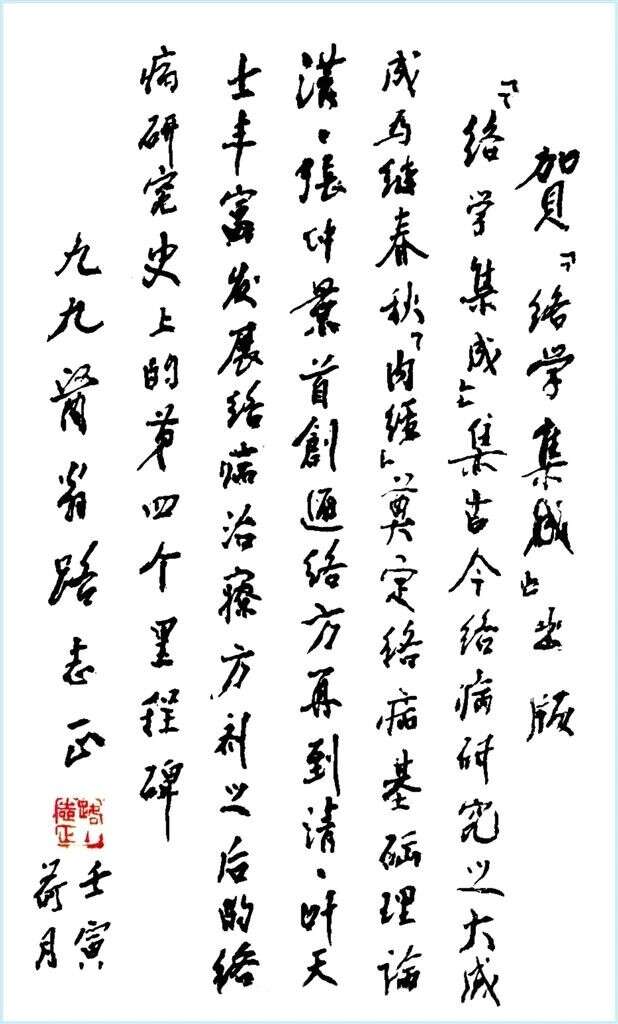 賀『络学集成』出版
『络学集成』集古今络病研究之大成
成为继春秋『内經』奠定络病基础理論
漢、張仲景首創通络方再到清、叶天
士丰富发展络病治療方剂之后的络
病研究史上的第四个里程碑
九九醫翁路志正
壬寅
荷月